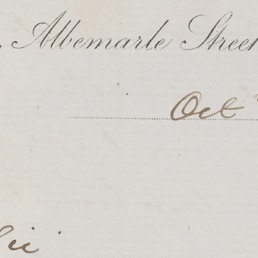 Albemarle Street
Oct